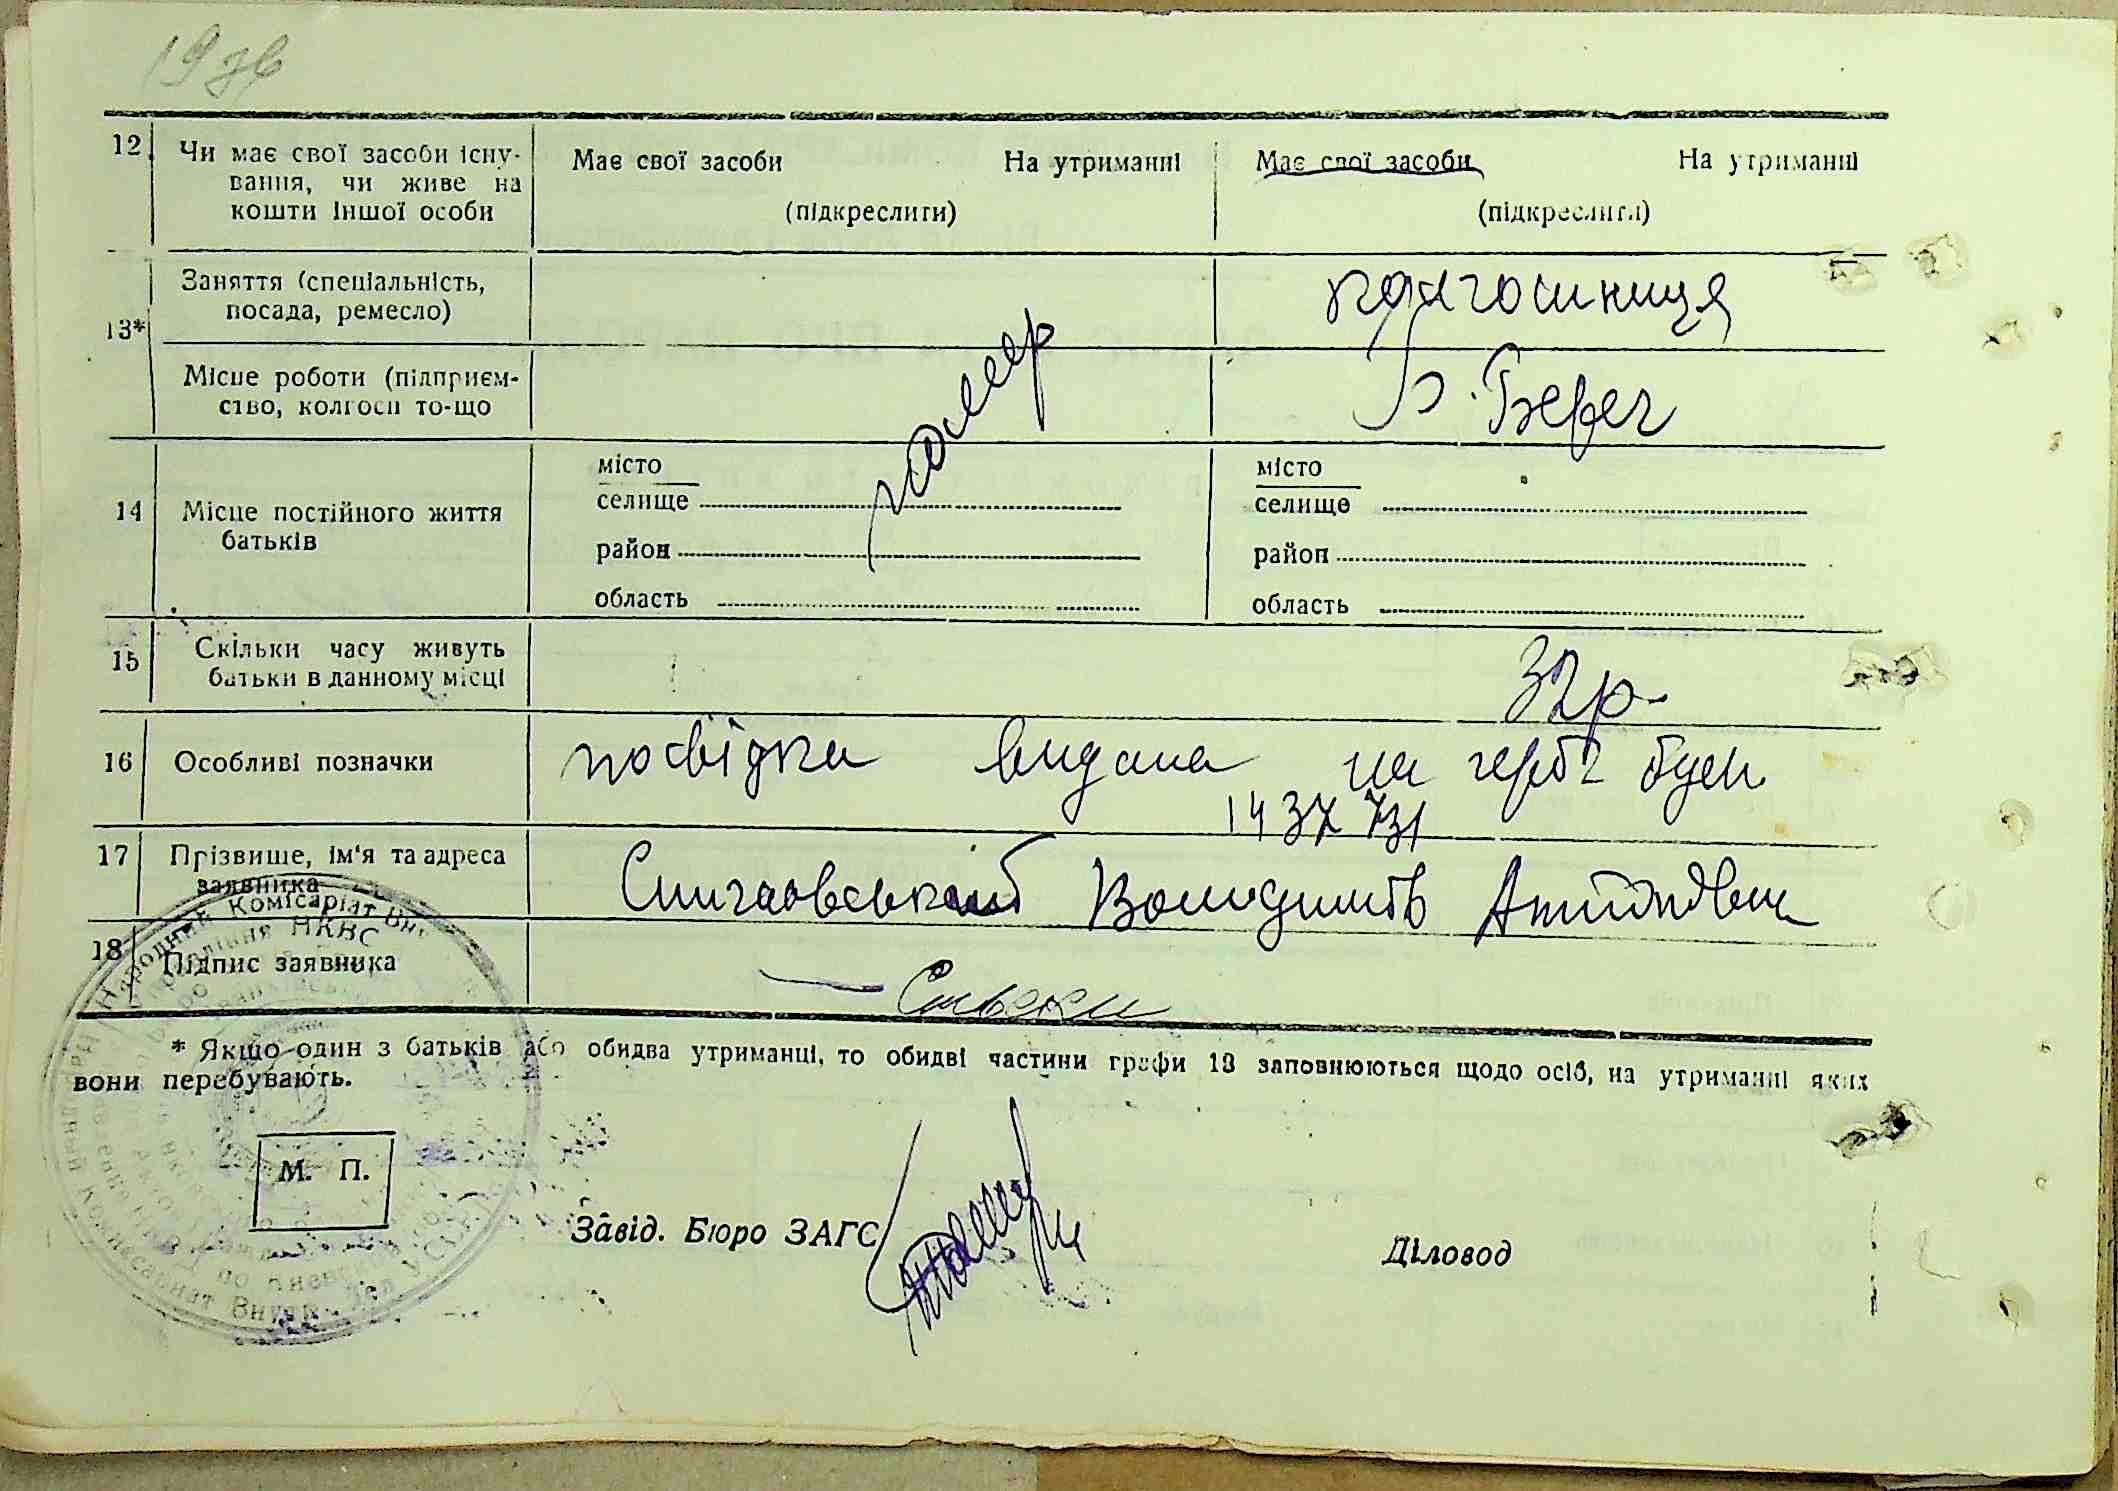 19 зв
12 Чи має свої засоби існу-
вання, чи живе на
кошти іншої особи
Має свої засоби На утриманні
(підкреслити)
Має свої засоби На утриманні
(підкреслити)
13* Заняття (спеціальність,
посада, ремесло)
колгосниця
Місце роботи (підприєм-
ство, колгосп то-що
помер
Б. Берег
14 Місце постійного життя
батьків
місто
селище
район
область
місто
селище
район
область
15 Скільки часу живуть
батьки в данному місці
32р.
16 Особливі позначки
посвідка видана на гербі буен
1437731
17 Прізвище, ім'я та адреса
заявника
18 Підпис заявника
* Якщо один з батьків або обидва утриманці, то обидві частини графи 13 заповнюються щодо осіб, на утриманні яких
вони перебувають.
М. П.
Завід. Бюро ЗАГС
Діловод
Народний Комісаріат Вн
Управління НКВС
Комиссариат Внутр. Дел УССР